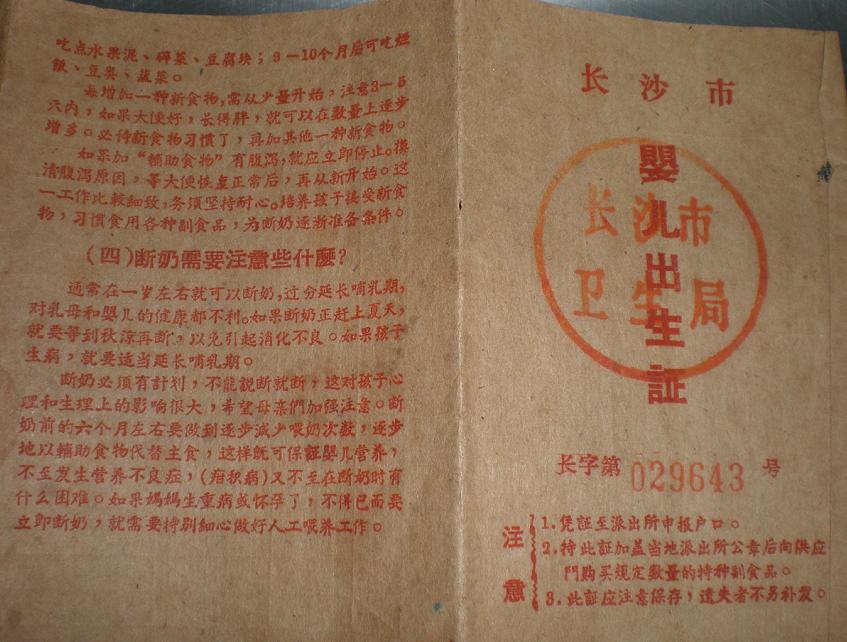 吃点水果泥、碎菜、豆腐块；9－10个月后可吃烂
飯、豆类、蔬菜。
每增加一种新食物，需从少量开始，注意3－5
天内，如果大便好，长得胖，就可以在数量上逐步
增多。必待新食物习惯了，再加其他一种新食物。
如果加“輔助食物”有腹泻，就应立即停止。摸
清腹泻原因，等大便恢复正常后，再从新开始。这
一工作比較細致，务须坚持耐心。培养孩子接受新食
物，习慣食用各种副食品，为断奶逐漸准备条件。
(四)断奶需要注意些什麽?
通常在一岁左右就可以断奶，过分延长哺乳期，
对乳母和嬰儿的健康都不利。如果断奶正赶上夏天，
就要等到秋涼再断，以免引起消化不良。如果孩子
生病，就要适当延长哺乳期。
断奶必須有計划，不能説断就断，这对孩子心
理和生理上的影响很大，希望母亲們加强注意。断
奶前的六个月左右要做到逐步減少喂奶次数，逐步
地以輔助食物代替主食，这样既可保証嬰儿营养，
不至发生营养不良症，(疳积病)又不至在断奶时有
什么困难。如果媽媽生重病或怀孕了，不得已而要
立即断奶，就需要特別細心做好人工喂养工作。
长沙市
嬰儿出生証
长沙市
卫生局
长字第 029643 号
注意
1.凭証至派出所申报户口。
2.持此証加盖当地派出所公章后向供应
門购买規定数量的特种副食品。
3.此証应注意保存，遺失者不另补发。